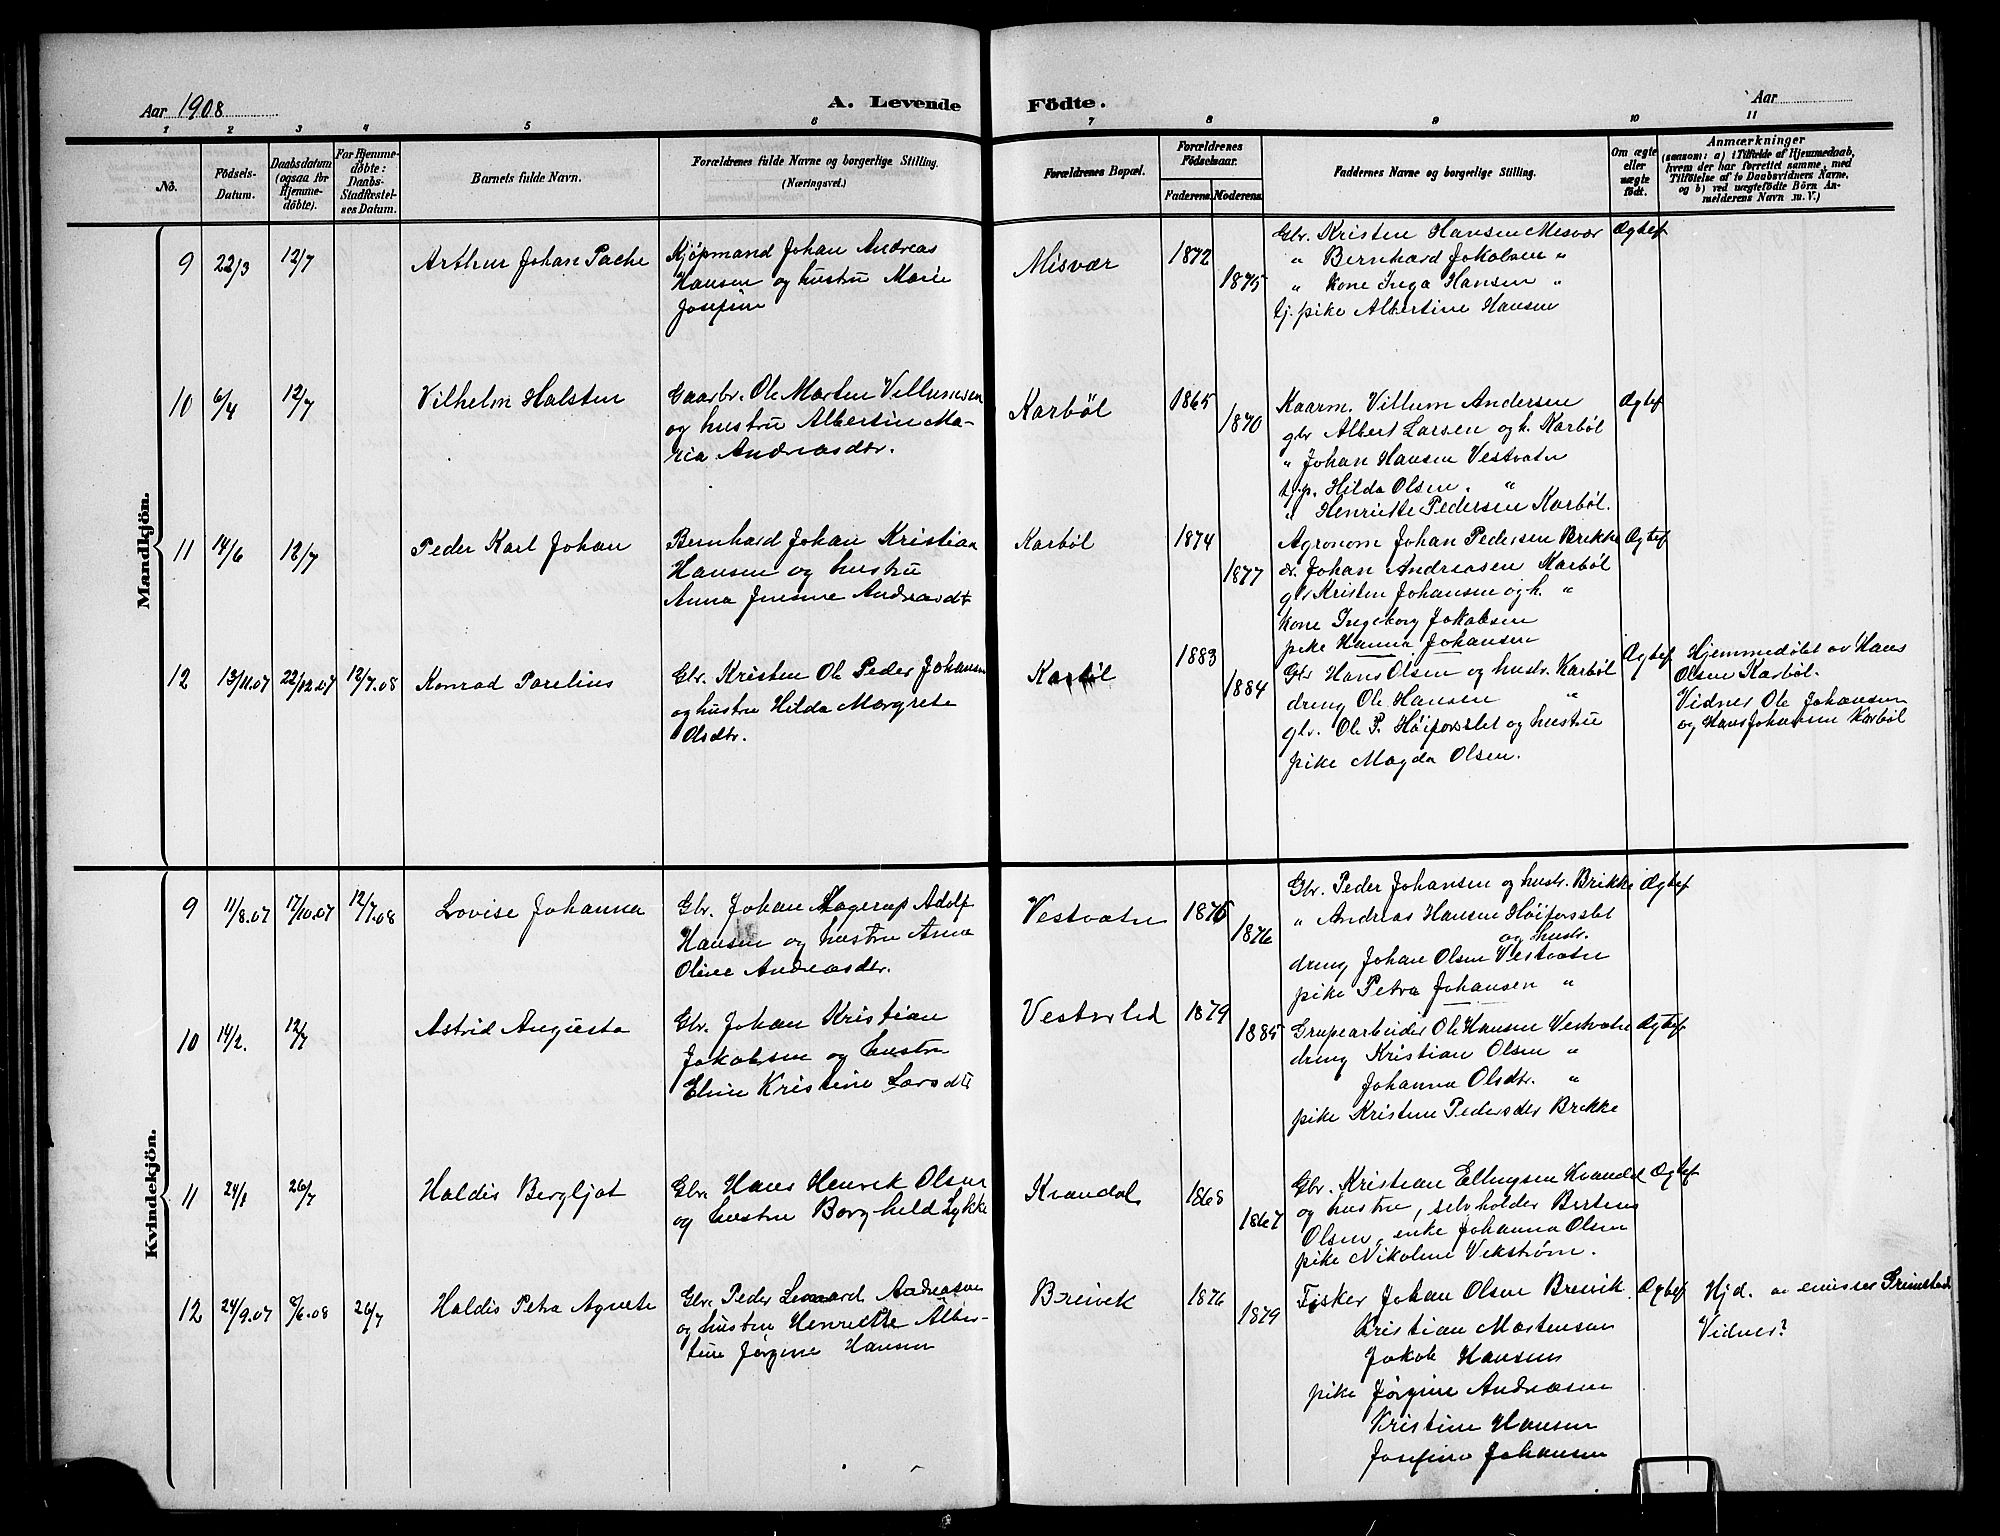 Aar 1908
A. Levende Födte.
Aar
1 2 3 4 5 6 7 8 9 10 11
No.
Födsels-Datum.
Daabsdatum (ogsaa for Hjemmedöbte).
For Hjemmedöbte: Daabs-Stadfæstelses Datum.
Barnets fulde Navn.
Forældrenes fulde Navne og borgerlige Stilling.
(Næringsvei.)
Forældrenes Bopæl.
Forældrenes Födselsaar.
Faderens. Moderens.
Faddernes Navne og borgerlige Stilling.
Om ægte eller uægte födt.
Anmærkninger
(saasom: a) i Tilfælde af Hjemmedaab, hvem der har forrettet samme, med Tilföielse af to Daabsvidners Navne, og b) ved uægtefödte Börn Anmelderens Navn m. V.)
Mandkjön.
9 22/3 12/7 Arthur Johan Pache
Kjöpmand Johan Andreas
Hansen og hustru Marie
Josefine
Misvær 1872 1875
Gbr. Kristen Hansen Misvær
" Bernhard Jokobsen "
" kone Inga Hansen "
tj. pike Albertine Hansen
Ægtef
10 6/4 12/7 Vilhelm Halsten
Gaarbr. Ole Morten Villumsen
og hustru Albertin Ma-
ria Andreasdtr.
Karbøl 1865 1870
Kaarm. Villum Andersen
gbr Albert Larsen og h. Karbøl
" Johan Hansen Vestvatn
tj.p. Hilda Olsen. "
" Henriette Pedersen Karbøl.
Ægtef
11 14/6 12/7 Peder Karl Johan
Bernhard Johan Kristian
Hansen og hustru
Anna Andreasdt
Karbøl 1874 1877
Agronom Johan Pedersen Brikke
dr. Johan Andreasen Karbøl
gbr Kristen Johansen og h. "
kone Ingeborg Jokobsen
pike Hanna Johansen
Ægtef
12 13/11.07 22/12.07 12/7.08 Konrad Parelius
Gbr. Kristen Ole Peder Johansen
og hustru Hilda Margrete
Olsdtr.
Karbøl 1883 1884
Gbr Hans Olsen og hustr. Karbøl
dreng Ole Hansen "
gbr. Ole P. Høiforslet og hustru
pike Magda Olsen.
Ægtef
Hjemmedøbt av Hans
Olsen Karbøl.
Vidner Ole Johansen
og Hans Johansen Karbøl
Kvindekjön.
9 11/8.07 17/10.07 12/7.08 Lovise Johanna
Gbr. Johan Hagerup Adolf
Hansen og hustru Anna
Oline Andreasdtr.
Vestvatn 1876 1876
Gbr. Peder Johansen og hustr. Brikke
" Andreas Hansen Höiforsslet
og hustr.
dreng Johan Olsen Vestvatn
pike Petra Johansen "
Ægtef
10 14/2. 12/7 Astrid Augusta
Gbr. Johan Kristian
Jokobsen og hustru
Eline Kristine Larsdt
Vestvatn 1879 1885
Grubearbeider Ole Hansen Vestvatn
dreng Kristian Olsen "
Johanna Olsdtr. "
pike Kristine Pedersder Brekke
Ægtef
11 24/1 26/7 Haldis Bergljot
Gbr Hans Henrik Olsen
og hustru Borghild Lykke
Kvandal 1868 1867
Gbr. Kristian Ellingsen Kvandal
og hustru, selvholder Bertinus
Olsen, enke Johanna Olsen
pike Nikoline Vekstrøm.
Ægtef
12 24/9.07 8/6.08 26/7 Haldis Petra Agnete
Gbr. Peder Lenard Andreasen
og hustru Henriette Alber-
tine Jørgine Hansen
Breivik 1876 1879
Fisker Johan Olsen Breivik.
Kristian Mortensen
Jakob Hansen
pike Jørgine Andreasen
Kristine Hansen
Josefine Johansen
Ægtef
Hjd. av emissær Grimstad
Vidner?